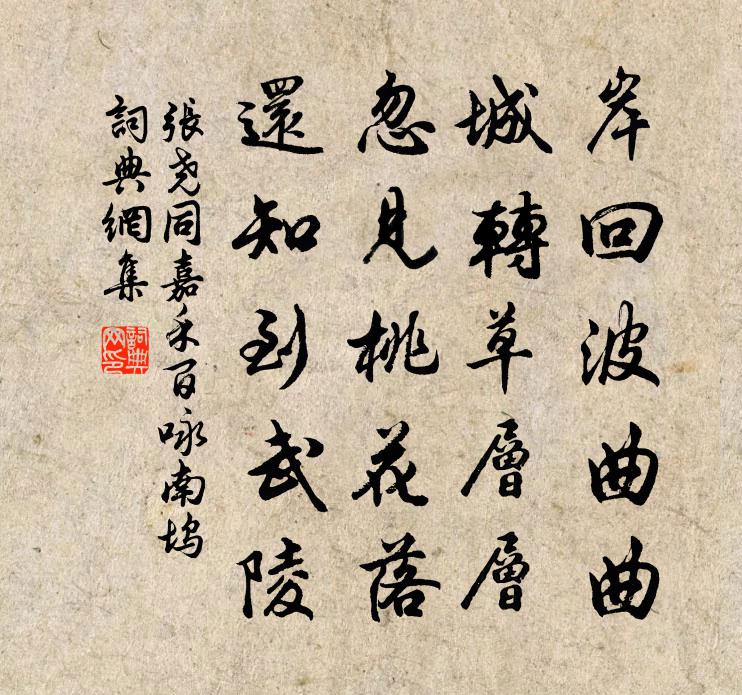 岸回波曲曲
城轉草層層
忽見桃花落
還知到武陵
張尭同嘉禾百咏南塢
詞典網集
詞典
网印